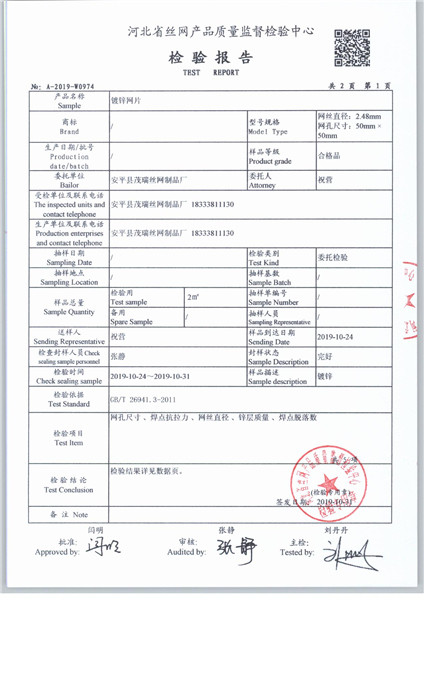 河北省丝网产品质量监督检验中心
检验报告
TEST REPORT
№: A-2019-W0974 共 2 页 第 1 页
产品名称 镀锌网片
Sample
商标 / 型号规格 网丝直径: 2.48mm
Brand Model Type 网孔尺寸: 50mm×
50mm
生产日期/批号 / 样品等级 合格品
Production Product grade
date/batch
委托单位 安平县茂瑞丝网制品厂 委托人 祝营
Bailor Attorney
受检单位及联系电话
The inspected units and 安平县茂瑞丝网制品厂 18333811130
contact telephone
生产单位及联系电话
Production enterprises 安平县茂瑞丝网制品厂 18333811130
and contact telephone
抽样日期 / 检验类别 委托检验
Sampling Date Test Kind
抽样地点 / 抽样基数 /
Sampling Location Sample Batch
样品总量 检验用 2㎡ 抽样单编号 /
Sample Quantity Test sample Sample Number
备用 / 抽样人员 /
Spare Sample Sampling Representative
送样人 祝营 样品到达日期 2019-10-24
Sending Representative Sending Date
检查封样人员Check 张静 封样状态 完好
sealing sample personnel Sample Description
检验时间 2019-10-24～2019-10-31 样品描述 镀锌
Check sealing sample Sample description
检验依据 GB/T 26941.3-2011
Test Standard
检验项目 网孔尺寸、焊点抗拉力、网丝直径、锌层质量、焊点脱落数
Test Item
检验结论 检验结果详见数据页。
Test Conclusion
(检验专用章)
签发日期: 2019-10-31
备 注 Note
闫明 张静 刘丹丹
批准: 审核: 主检:
Approved by: Audited by: Tested by: